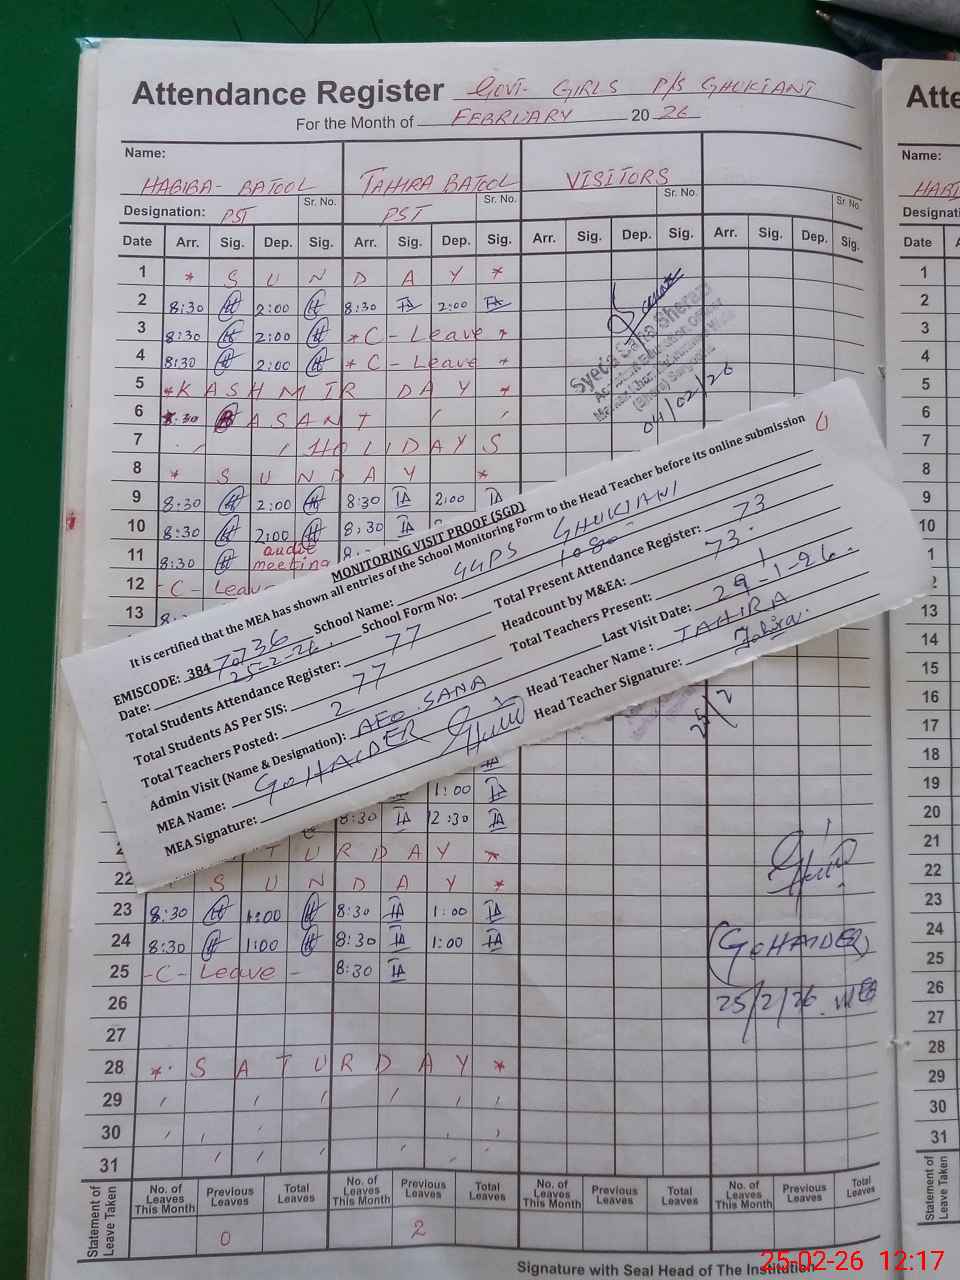 Attendance Register GOVT- GIRLS P/S GHUKIANI
For the Month of FEBRUARY 20 26
Name:
HABIBA- BATOOL TAHIRA BATOOL VISITORS
Designation: PST Sr. No. PST Sr. No. Sr. No. Sr. No.
Date Arr. Sig. Dep. Sig. Arr. Sig. Dep. Sig. Arr. Sig. Dep. Sig. Arr. Sig. Dep. Sig.
1 * S U N D A Y *
2 8:30 2:00 8:30 TA 2:00 TA
3 8:30 2:00 * C - Leave *
4 8:30 2:00 * C - Leave *
5 * K A S H M I R D A Y *
6 8:30 B A S A N T
7 H O L I D A Y S
8 * S U N D A Y *
9 8:30 2:00 8:30 TA 2:00 TA
10 8:30 2:00 8:30 TA
11 8:30 audit meeting
12 - C - Leave
13
04/02/26
MONITORING VISIT PROOF (SGD)
It is certified that the MEA has shown all entries of the School Monitoring Form to the Head Teacher before its online submission
EMISCODE: 384 70736 School Name: GGPS GHUKIANI
Date: 25-2-26. School Form No: 1080
Total Students Attendance Register: 77 Total Present Attendance Register: 73
Total Students AS Per SIS: 77 Headcount by M&EA: 73.
Total Teachers Posted: 2 Total Teachers Present: 1
Admin Visit (Name & Designation): AEO SANA Last Visit Date: 29-1-26.
MEA Name: G. HAIDER Head Teacher Name : TAHIRA
MEA Signature: Head Teacher Signature: Tahira.
14
15
16
17
18
19 1:00 TA
20 8:30 TA 12:30 TA
21 T U R D A Y *
22 S U N D A Y *
23 8:30 1:00 8:30 TA 1:00 TA
24 8:30 1:00 8:30 TA 1:00 TA
25 - C - Leave - 8:30 TA
(G. HAIDER)
25/2/26. MEA
26
27
28 * S A T U R D A Y *
29
30
31
Statement of Leave Taken
No. of Leaves This Month Previous Leaves Total Leaves No. of Leaves This Month Previous Leaves Total Leaves No. of Leaves This Month Previous Leaves Total Leaves No. of Leaves This Month Previous Leaves Total Leaves
0 2
Signature with Seal Head of The Institution
25-02-26 12:17
Atte
Name:
Date
1
2
3
4
5
6
7
8
9
10
12
13
14
15
16
17
18
19
20
21
22
23
24
25
26
27
28
29
30
31
Statement of Leave Taken